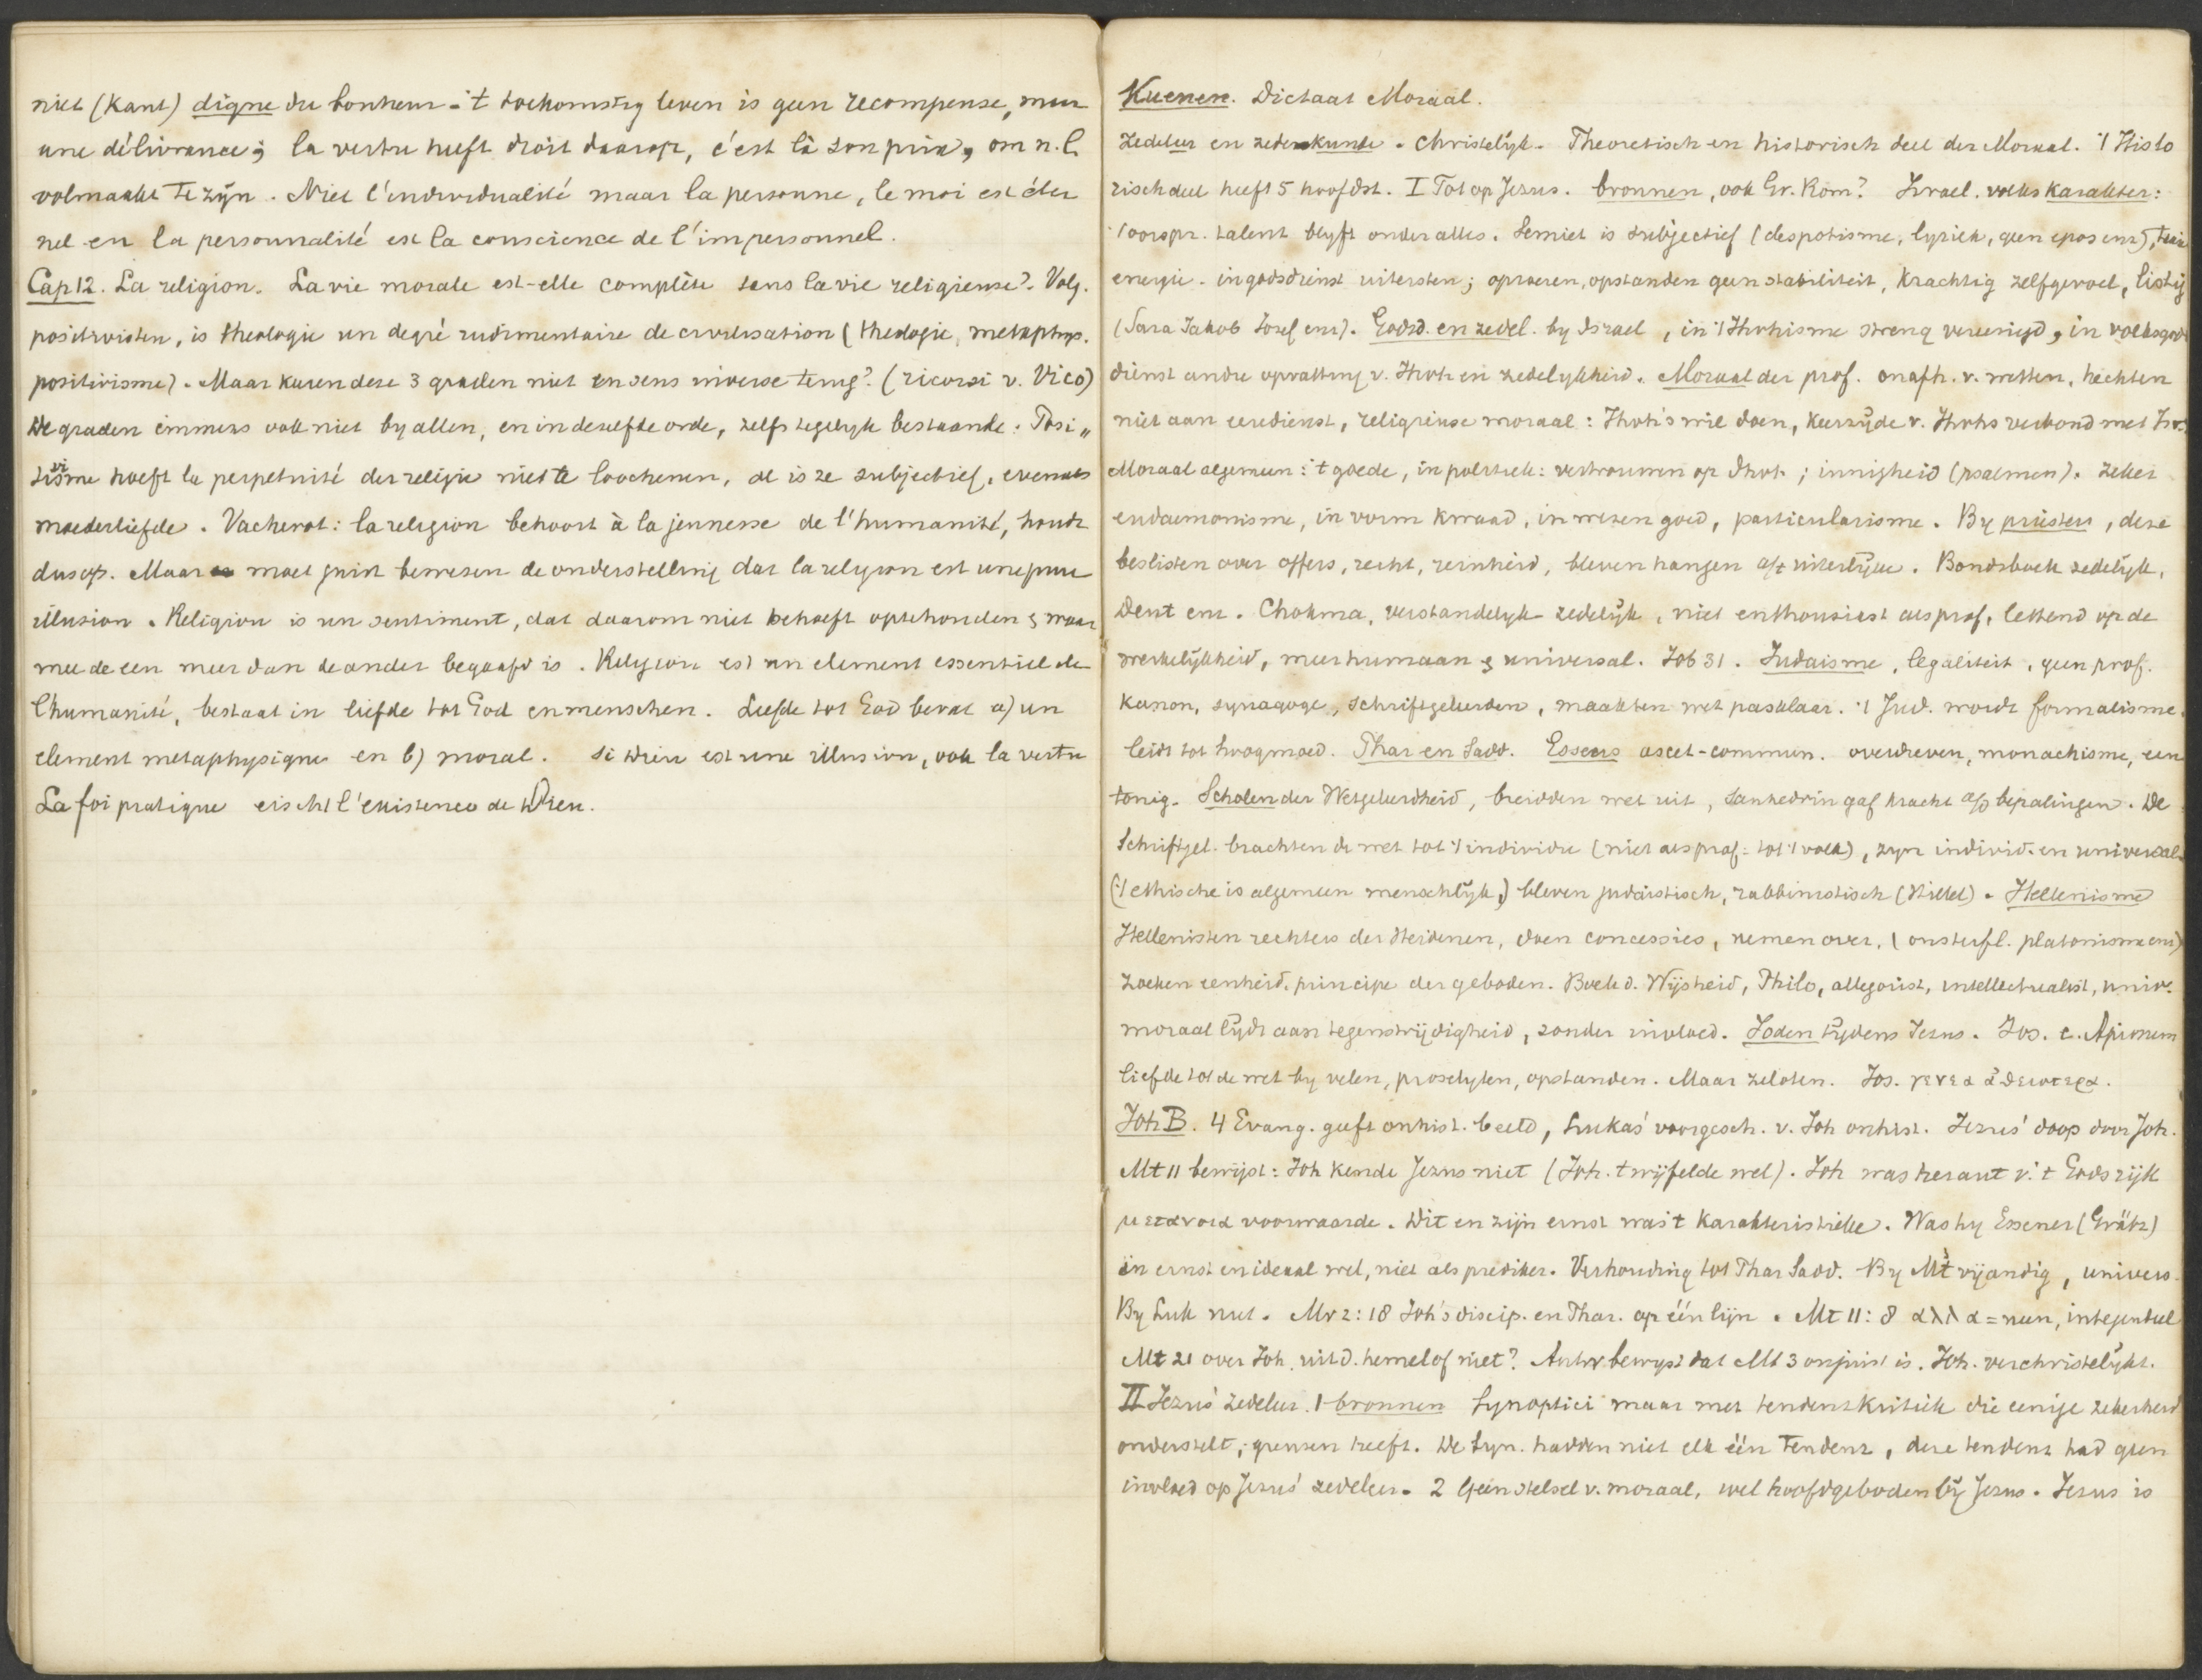 niet (Kant) digne du bonheur - 't toekomstig leven is geen recompense, maar
une délivrance; la vertu heeft droit daarop, c'est là son prix, om n.l.
volmaakt te zijn. Niet l'individualité maar la personne, le moi est éter
nel en la personnalité est la conscience de l'impersonnel.
Cap 12. La religion. La vie morale est-elle complète sans la vie religieuse? Volg.
positivisten, is theologie un degré rudimentaire de civilisation (theologie, metaphys.
positivisme). Maar keeren deze 3 graden niet en sens inverse terug? (ricorsi v. Vico)
De graden immers ook niet by allen, en in dezelfde orde, zelfs tegelyk bestaande. Posi„
tivisme hoeft la perpetuité der religie niet te loochenen, al is ze subjectief, evenals
moederliefde. Vacherot: la religion behoort à la jeunesse de l'humanité, houdt
dus op. Maar moet juist bewezen de onderstelling dat la religion est une pure
illusion. Religion is un sentiment, dat daarom niet behoeft optehouden & waar
mee de een meer dan de ander begaafd is. Religion est un element essentiel de
l'humanité, bestaat in liefde tot God en menschen. Liefde tot God bevat a) un
element metaphysique en b) moral. Si Dieu est une illusion, ook la vertu
La foi pratique eischt l'existence de Dieu.
Kuenen. Dictaat Moraal.
Zedeleer en zedenkunde. Christelyk. Theoretisch en historisch deel der Moraal. 't Histo
risch deel heeft 5 hoofdst. I Tot op Jezus. bronnen, ook Gr. Rom? Israel. volks karakter:
't oorspr. talent blyft onder alles. Semiet is subjectief (despotisme, lyriek, geen epos enz),
energie. in godsdienst uitersten; oproeren, opstanden geen stabiliteit, krachtig zelfgevoel, listig
(Sara Jakob Jozef enz). Godsd. en zedel. by Israel, in 't Jhvhisme streng vereenigd, in volksgods
dienst andre opvatting v. Jhvh en zedelykheid. Moraal der prof. onafh. v. wetten, hechten
niet aan eeredienst, religieuse moraal: Jhvh's wil doen, keerzijde v. Jhvhs verbond met Isr.
Moraal algemeen: 't goede, in politiek: vertrouwen op Jhvh; innigheid (psalmen). Zeker
eudaemonisme, in vorm kwaad, in wezen goed, particularisme. By priesters, deze
beslisten over offers, recht, reinheid, bleven hangen a/h uiterlijke. Bondsboek zedelijk,
Deut enz. Chokma, verstandelyk-zedelijk, niet enthousiast als prof, lettend op de
werkelijkheid, meer humaan & universal. Job 31. Judaisme, legaliteit, geen prof.
kanon, synagoge, schriftgeleerden, maakten wet pasklaar. 't Jud. wordt formalisme.
leidt tot hoogmoed. Phar en Sadd. Essers ascet-commun. overdreven, monachisme, een
tonig. Scholen der Wetgeleerdheid, breidden wet uit, Sanhedrin gaf kracht a/d bepalingen. De
Schriftgel. brachten de wet tot 't individu (niet als prof: tot 't volk), zyn individ. en universal
('t ethische is algemeen menschlijk,) bleven judaistisch, rabbinistisch (Hillel). Hellenisme
Hellenisten rechters der Heidenen, doen concessies, nemen over, (onsterfl. platonisme enz)
zoeken eenheid, principe der geboden. Boek d. Wijsheid, Philo, allegorist, intellectualist, univ.
moraal lijdt aan tegenstrijdigheid, zonder invloed. Joden tijdens Jezus. Jos. c. Apionem
liefde tot de wet by velen, proselyten, opstanden. Maar zeloten. Jos.
Joh B. 4 Evang. geeft onhist. beeld, Lukas' voorgesch. v. Joh onhist. Jezus' doop door Joh.
Mt 11 bewijst: Joh kende Jezus niet (Joh. twijfelde wel). Joh was heraut v. 't Godsrijk
μετανοια voorwaarde. Dit en zijn ernst was 't karakteristieke. Was hy Essener (Grätz)
in ernst en ideaal wel, niet als prediker. Verhouding tot Phar Sadd. By Mt vijandig, univers.
By Luk niet. Mr 2:18 Joh's discip. en Phar. op één lijn. Mt 11:8 αλλα = neen, integendeel
Mt 21 over Joh. uit d. hemel of niet? Antw bewyst dat Mt 3 onjuist is. Joh. verchristelijkt.
II Jezus' zedeleer. 1 bronnen Synoptici maar met tendentkritiek die eenige zekerheid
onderstelt, grenzen heeft. De Syn. hadden niet elk één tendenz, deze tendenz had geen
invloed op Jezus' zedeleer. 2 Geen stelsel v. moraal, wel hoofdgeboden bij Jezus. Jezus is